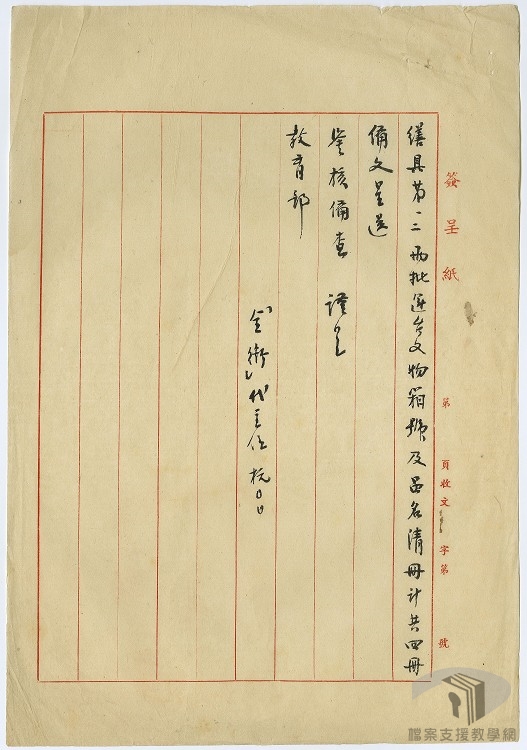 簽呈紙
第 頁收文 字第 號
繕具第一二兩批運台文物箱號及品名清冊計共四冊
備文呈送
鑒核備查 謹呈
教育部
全銜 代主任 杭〇〇
檔案支援教學網